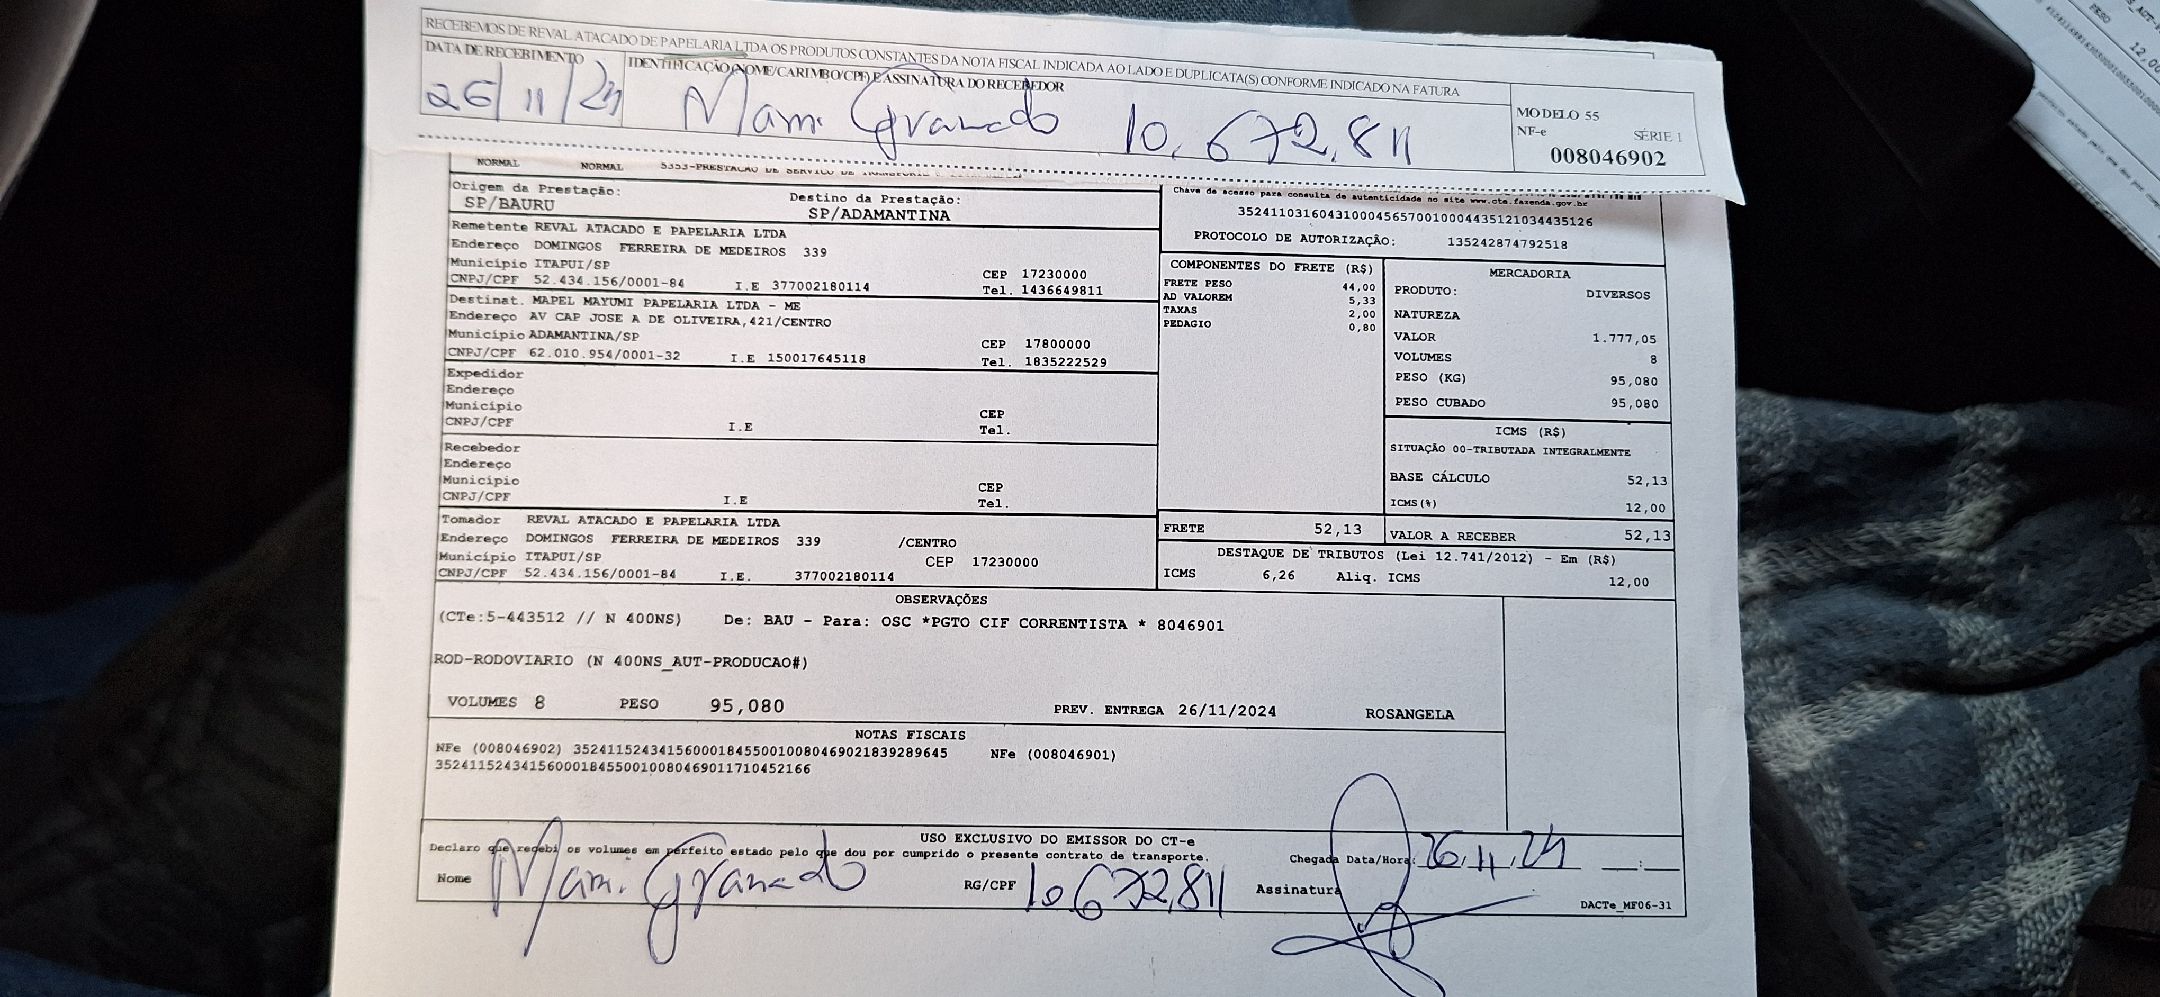 RECEBEMOS DE REVAL ATACADO DE PAPELARIA LTDA OS PRODUTOS CONSTANTES DA NOTA FISCAL INDICADA AO LADO E DUPLICATA(S) CONFORME INDICADO NA FATURA
DATA DE RECEBIMENTO IDENTIFICAÇÃO (NOME/CARIMBO/CPF) E ASSINATURA DO RECEBEDOR
26/11/24 Granado 10.672.811
MODELO 55
NF-e SÉRIE 1
008046902
NORMAL NORMAL 5353-PRESTACAO DE SERVICO DE
Origem da Prestação: Destino da Prestação:
SP/BAURU SP/ADAMANTINA
Chave de acesso para consulta de autenticidade no site www.cte.fazenda.gov.br
35241103160431000456570010004435121034435126
PROTOCOLO DE AUTORIZAÇÃO: 135242874792518
Remetente REVAL ATACADO E PAPELARIA LTDA
Endereço DOMINGOS FERREIRA DE MEDEIROS 339
Município ITAPUI/SP CEP 17230000
CNPJ/CPF 52.434.156/0001-84 I.E 377002180114 Tel. 1436649811
Destinat. MAPEL MAYUMI PAPELARIA LTDA - ME
Endereço AV CAP JOSE A DE OLIVEIRA,421/CENTRO
Município ADAMANTINA/SP CEP 17800000
CNPJ/CPF 62.010.954/0001-32 I.E 150017645118 Tel. 1835222529
Expedidor
Endereço
Município CEP
CNPJ/CPF I.E Tel.
Recebedor
Endereço
Município CEP
CNPJ/CPF I.E Tel.
Tomador REVAL ATACADO E PAPELARIA LTDA
Endereço DOMINGOS FERREIRA DE MEDEIROS 339 /CENTRO
Município ITAPUI/SP CEP 17230000
CNPJ/CPF 52.434.156/0001-84 I.E. 377002180114
COMPONENTES DO FRETE (R$)
FRETE PESO 44,00
AD VALOREM 5,33
TAXAS 2,00
PEDAGIO 0,80
MERCADORIA
PRODUTO: DIVERSOS
NATUREZA
VALOR 1.777,05
VOLUMES 8
PESO (KG) 95,080
PESO CUBADO 95,080
ICMS (R$)
SITUAÇÃO 00-TRIBUTADA INTEGRALMENTE
BASE CÁLCULO 52,13
ICMS(%) 12,00
FRETE 52,13 VALOR A RECEBER 52,13
DESTAQUE DE TRIBUTOS (Lei 12.741/2012) - Em (R$)
ICMS 6,26 Aliq. ICMS 12,00
OBSERVAÇÕES
(CTe:5-443512 // N 400NS) De: BAU - Para: OSC *PGTO CIF CORRENTISTA * 8046901
ROD-RODOVIARIO (N 400NS_AUT-PRODUCAO#)
VOLUMES 8 PESO 95,080 PREV. ENTREGA 26/11/2024 ROSANGELA
NOTAS FISCAIS
NFe (008046902) 35241152434156000184550010080469021839289645 NFe (008046901)
35241152434156000184550010080469011710452166
USO EXCLUSIVO DO EMISSOR DO CT-e
Declaro que recebi os volumes em perfeito estado pelo que dou por cumprido o presente contrato de transporte. Chegada Data/Hora: 26.11.24 __:__
Nome Granado RG/CPF 10.672.811 Assinatura
DACTe_MF06-31